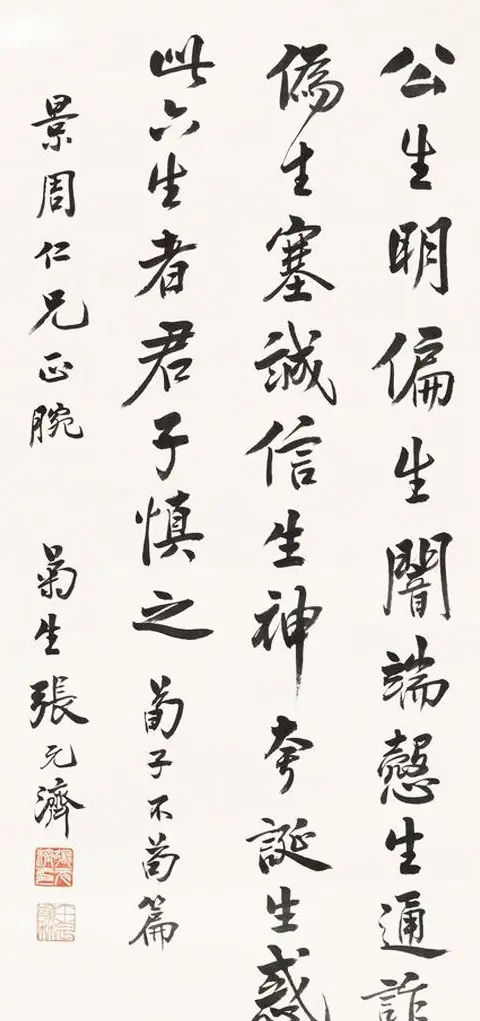 公生明偏生闇端愨生通詐
偽生塞誠信生神夸誕生惑
此六生者君子慎之 荀子不苟篇
景周仁兄正腕
菊生張元濟